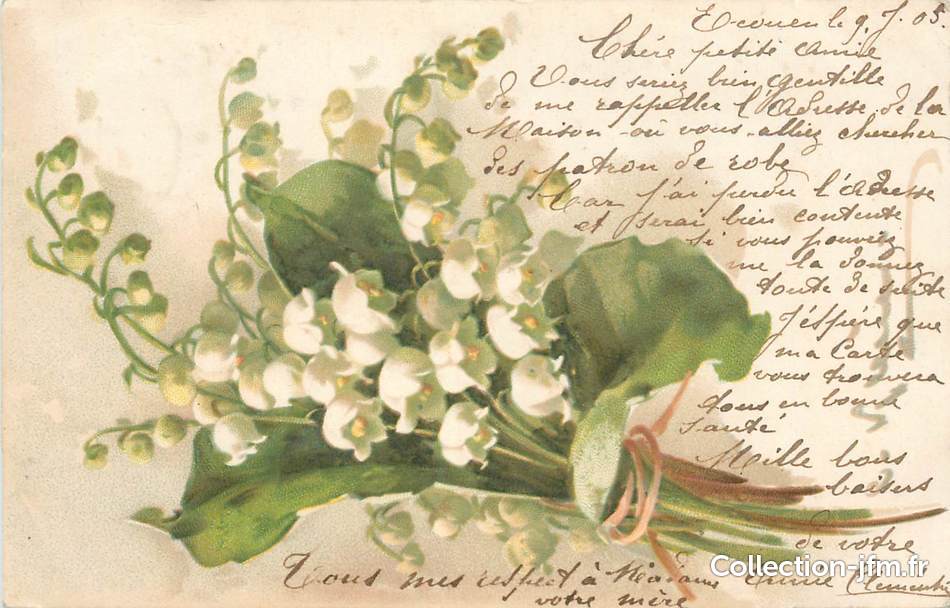 Ecouen le 9. J. 05.
Chére petite Amie
Vous seriez bien gentille
de me rappeller l'Adresse de la
Maison où vous alliez chercher
des patron de robe
Car j'ai perdu l'Adresse
et serai bien contente
si vous pouviez
me la donnez
toute de suite
J'éspére que
ma Carte
vous trouvera
tous en bonne
santé
Mille bons
baisers
de votre
Amie Clemente
Tous mes respect à Madame
votre mère
Collection-jfm.fr